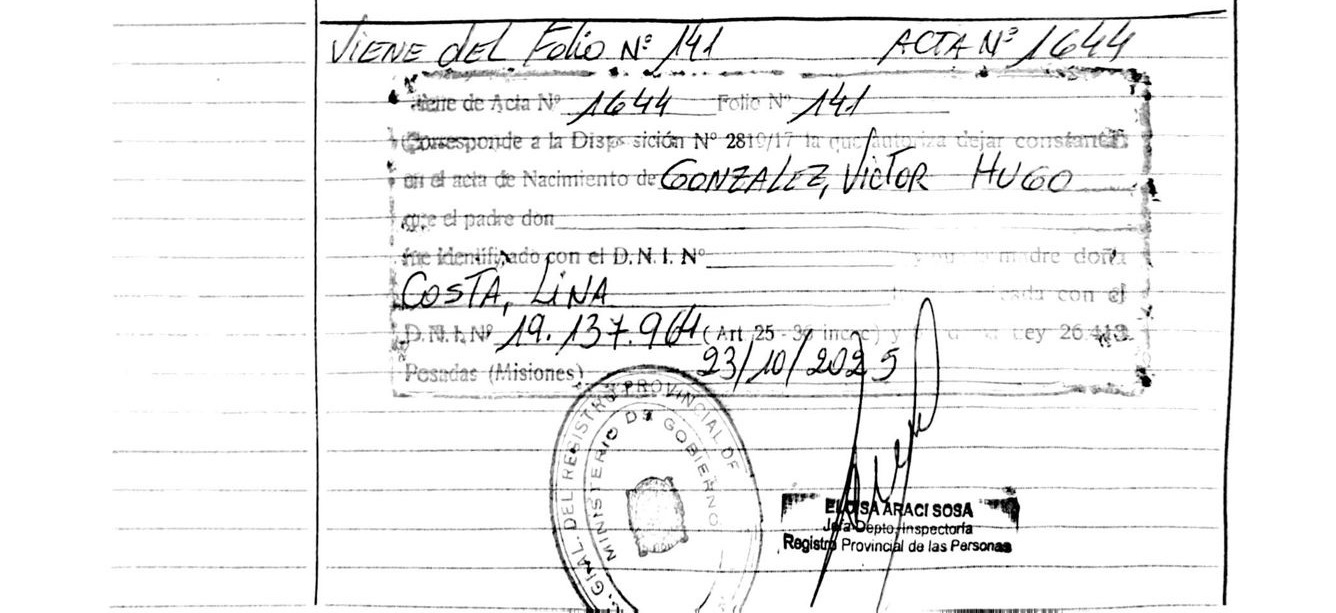 VIENE del Folio Nº 141 ACTA Nº 1644
Viene de Acta Nº 1644 Folio Nº 141
Corresponde a la Disposición Nº 2819/17 la que autoriza dejar constancia
en el acta de Nacimiento de GONZALEZ, VICTOR HUGO
que el padre don
fue identificado con el D.N.I. Nº y que la madre doña
COSTA, LINA con el
D.N.I. Nº 19.137.964 (Art 25 - 36 y Ley 26.413
Posadas (Misiones) 23/10/2025
GRAL. DEL REGISTRO PROVINCIAL DE
MINISTERIO DE GOBIERNO
ELOISA ARACI SOSA
Jefa Depto. Inspectoría
Registro Provincial de las Personas